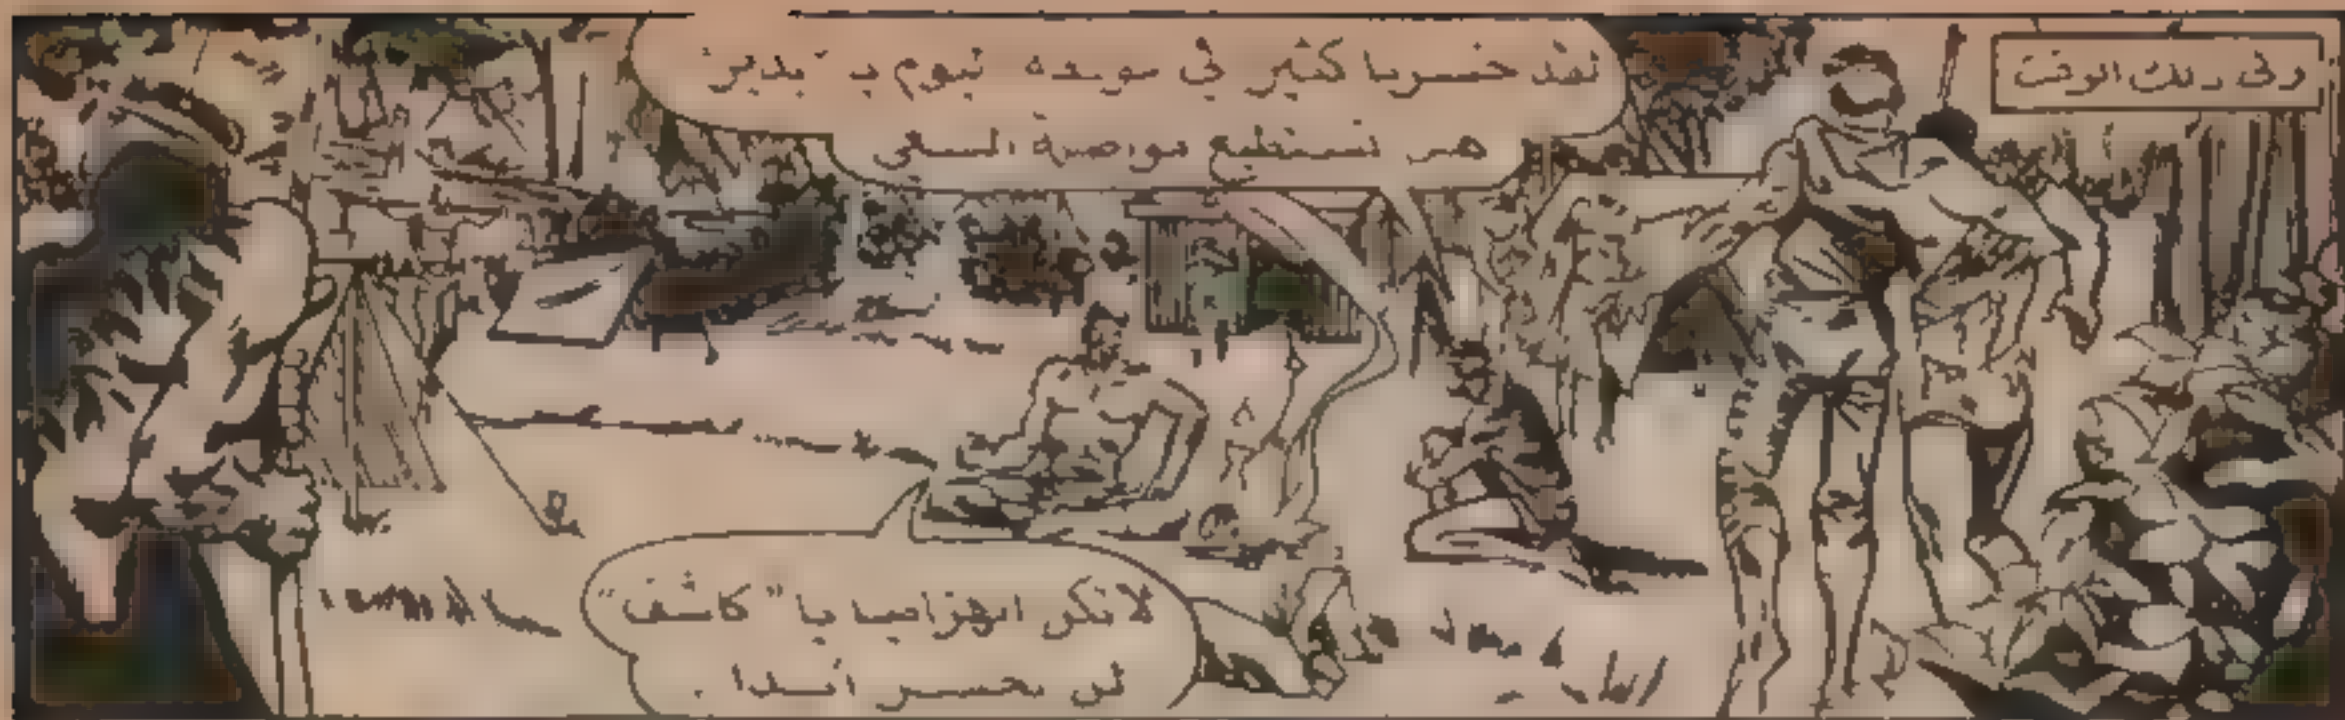 وفى ذلك الوقت
لقد خسرنا كثير فى موقعة اليوم يا "بدير"
هل نستطيع مواصلة السعى
لا تكن انهزاميا يا "كاشف"
لن نخسر أبدا .